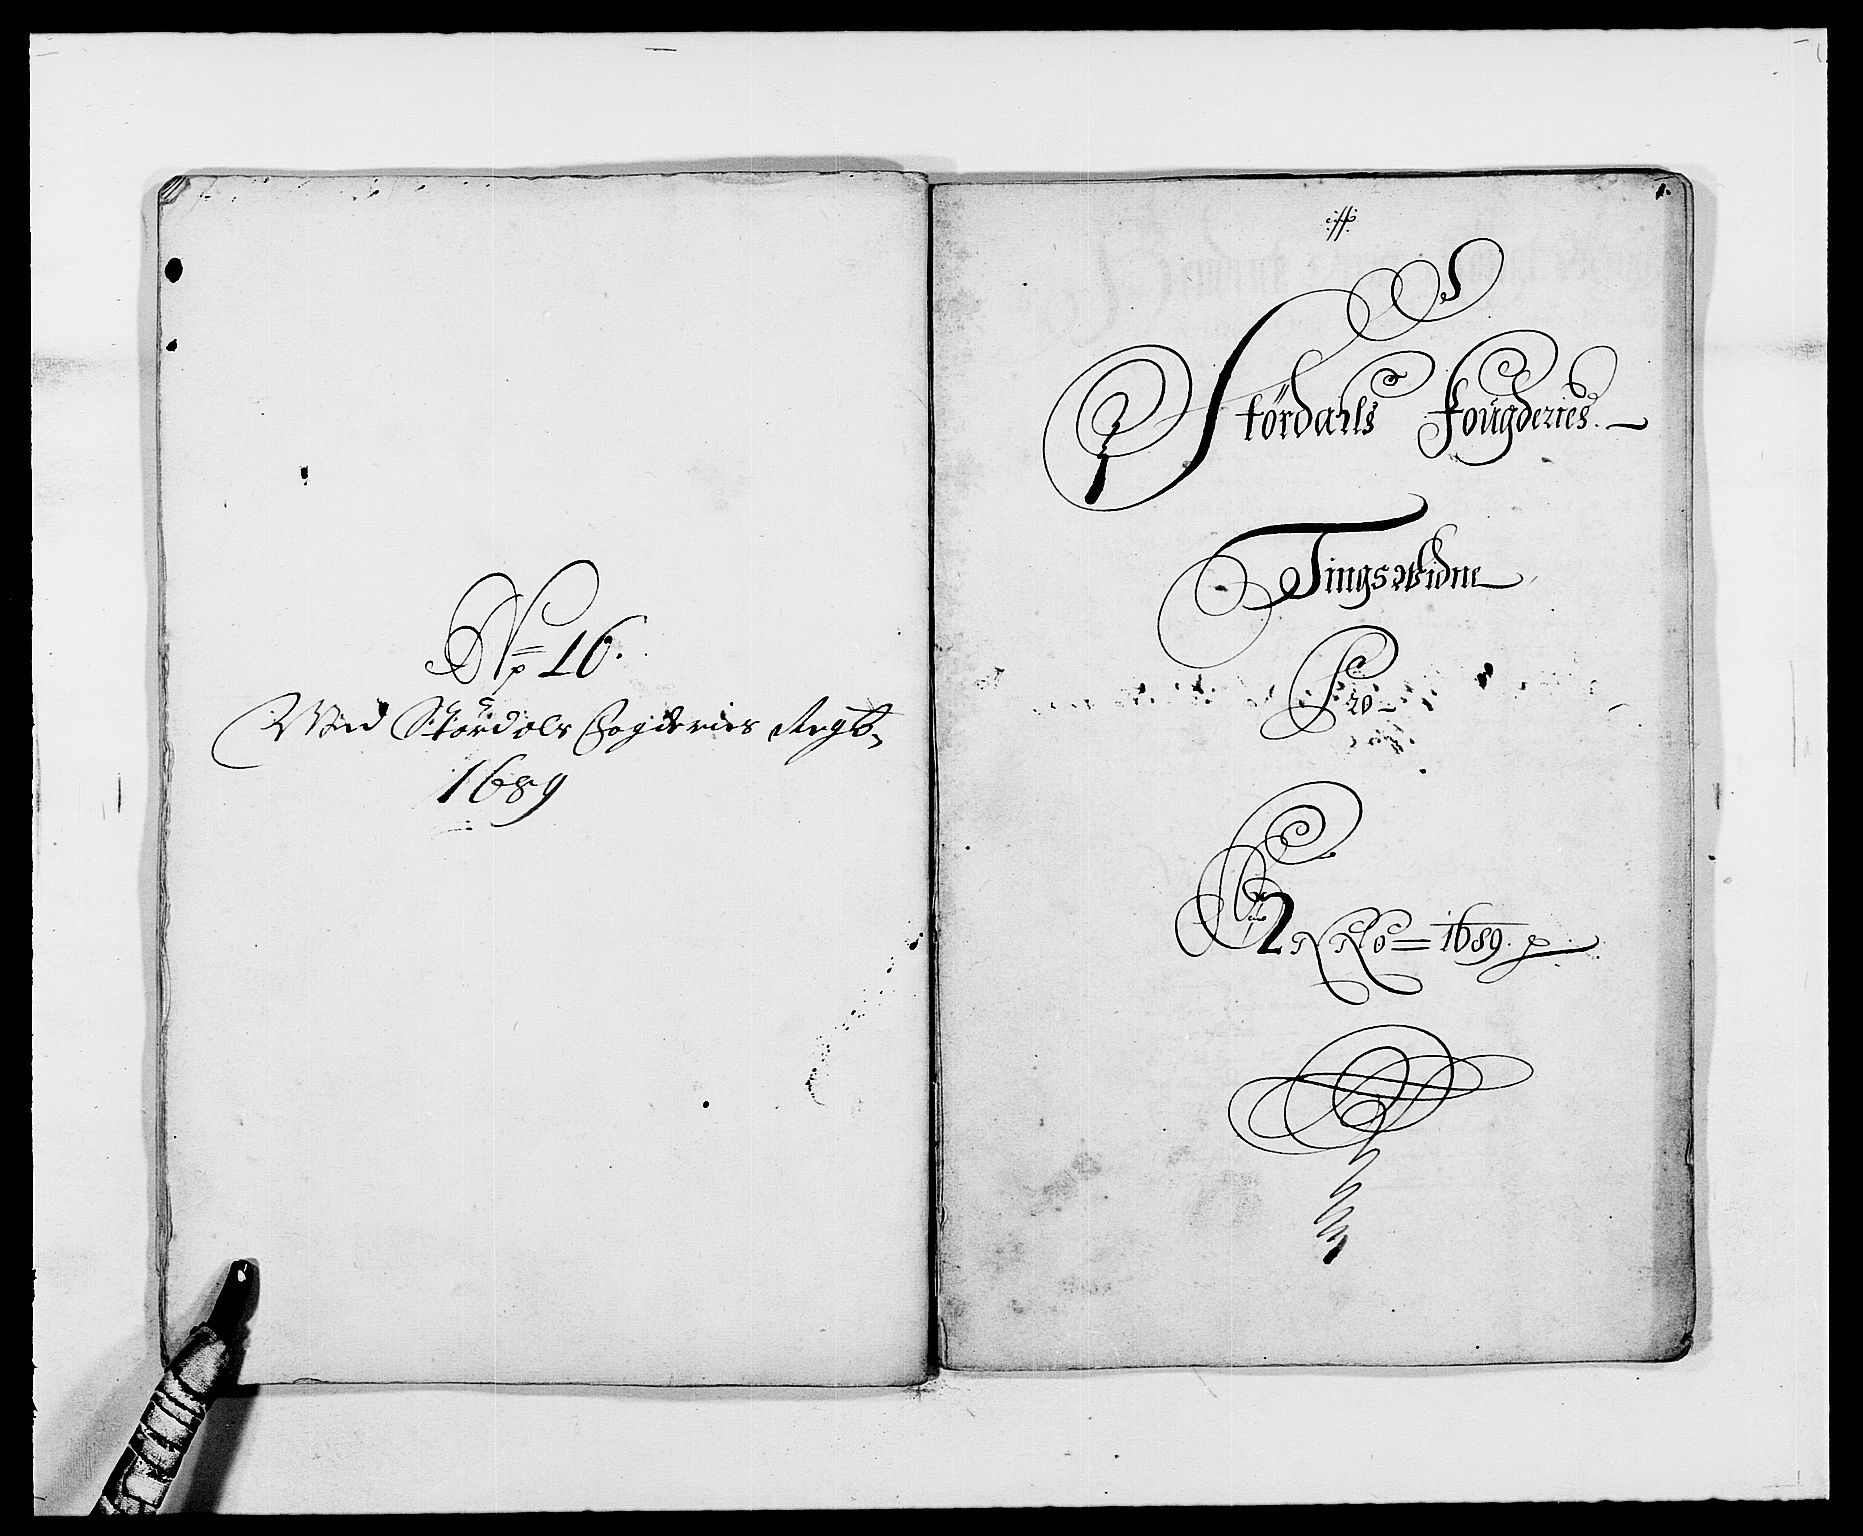 No 16.
Med Størdals Fogderies Regsk.
1689
1.
Størdalls Fougderies.
Tingswidne
Pro
Anno = 1689.